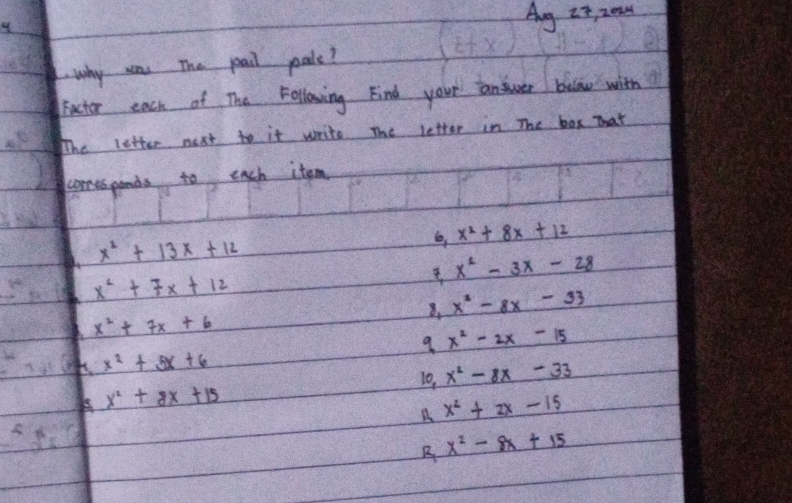 Aug 27, 2024
Why was The pail pale?
Factor each of The Following Find your answer below with
The letter next to it write The letter in The box That
corresponds to each item.
x² + 13x + 12
x² + 7x + 12
x² + 7x + 6
x² + 5x + 6
5, x² + 8x + 15
6, x² + 8x + 12
7, x² - 3x - 28
8, x² - 8x - 33
9, x² - 2x - 15
10, x² - 8x - 33
11, x² + 2x - 15
12, x² - 8x + 15